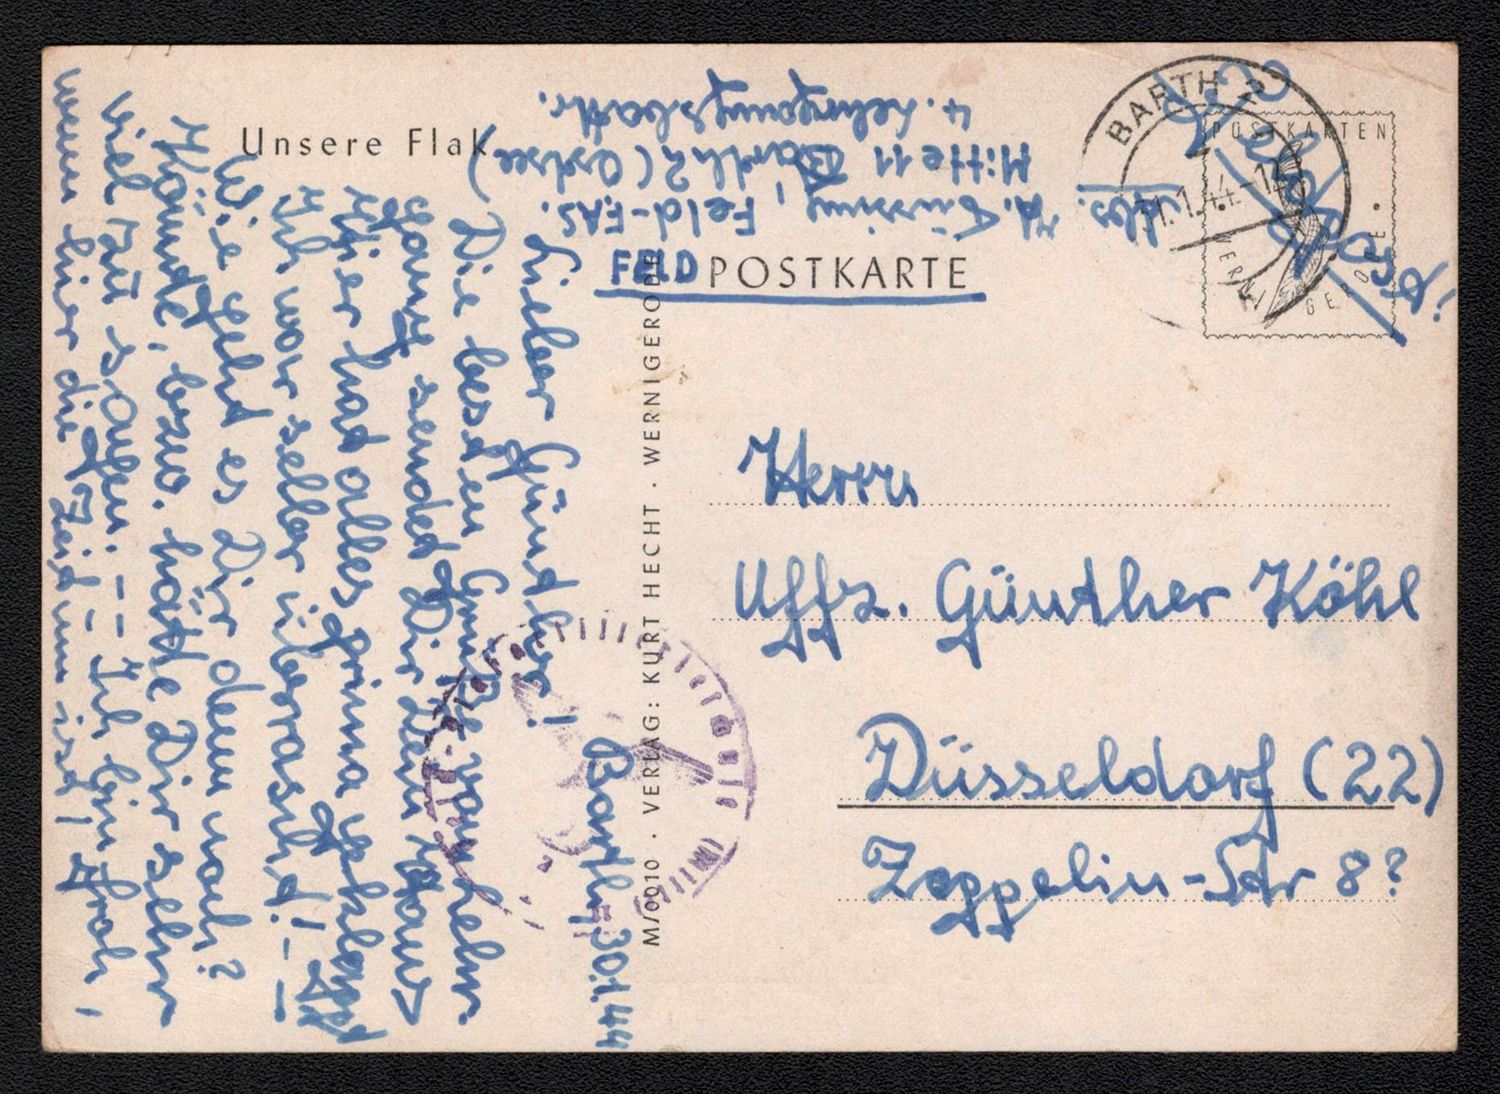 Unsere Flak
FELDPOSTKARTE
BARTH 2
31.1.44-12
POSTKARTEN
WERNIGERODE
Abs. A. Feld-FAS.
Mitte 11 Barth 2 (Ostsee)
4. Lehrgangsbattr.
M/0010 · VERLAG: KURT HECHT · WERNIGERODE
Barth, 30.1.44
Lieber Günther!
Die besten Grüße von hier
sendet Dir Dein
Hier hat alles prima geklappt
Ich war selber überrascht! –
Wie geht es Dir denn noch?
Könnte, bzw. hätte Dir sehr
viel zu – – Ich bin froh,
wenn hier die Zeit um ist!
Herrn
Uffz. Günther Köhl
Düsseldorf (22)
Zeppelin-Str 8?